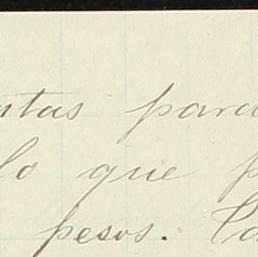 ntas para
lo que p
pesos. Ca